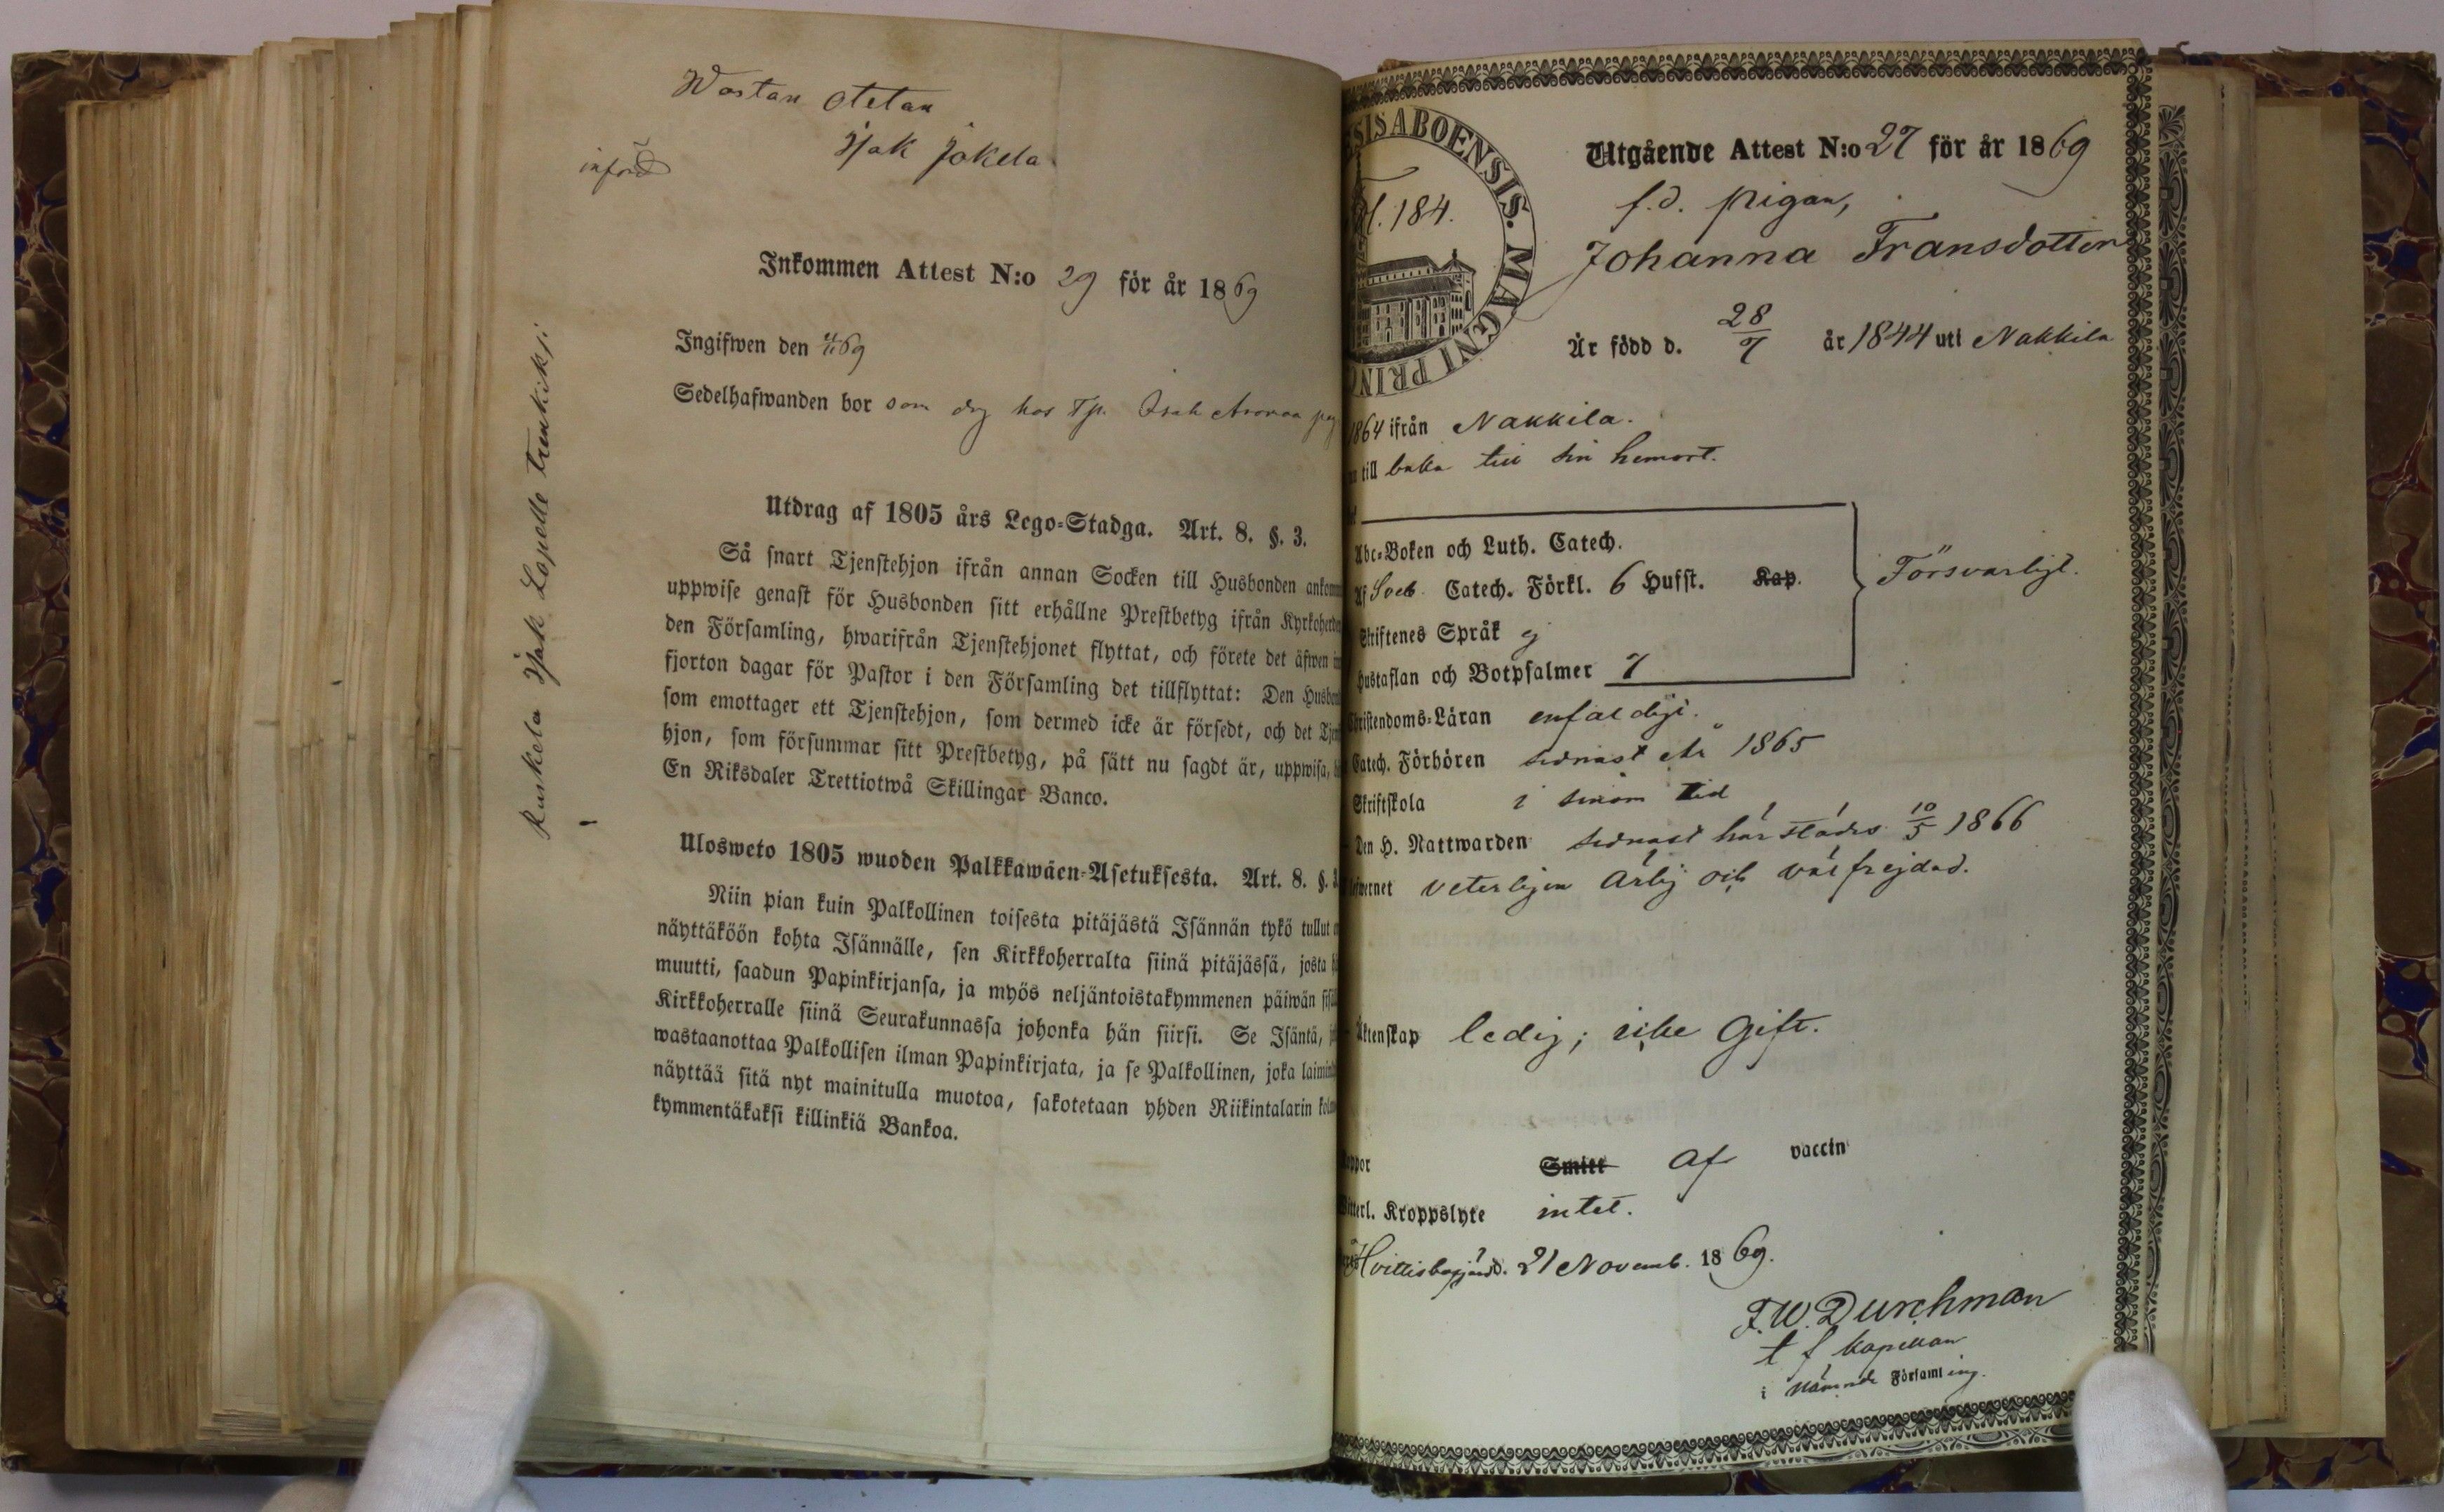 Wastan otetan
Isak Jokela
införd
Inkommen Attest N:o 29 för år 1869
Ingifwen den 69
Sedelhafwanden bor som drg hos Tp. Isak
Kuskela Isak Lopelle
Utdrag af 1805 års Lego-Stadga. Art. 8. §. 3.
Så snart Tjenstehjon ifrån annan Socken till Husbonden
uppwise genast för Husbonden sitt erhållne Prestbetyg ifrån
den Församling, hwarifrån Tjenstehjonet flyttat, och förete det äfwen
fjorton dagar för Pastor i den Församling det tillflyttat: Den
som emottager ett Tjenstehjon, som dermed icke är försedt, och det
hjon, som försummar sitt Prestbetyg, på sätt nu sagdt är, uppwisa,
En Riksdaler Trettiotwå Skillingar Banco.
Ulosweto 1805 wuoden Palkkawäen-Asetuksesta. Art. 8. §.
Niin pian kuin Palkollinen toisesta pitäjästä Isännän tykö tullut
näyttäköön kohta Isännälle, sen Kirkkoherralta siinä pitäjässä, josta
muutti, saadun Papinkirjansa, ja myös neljäntoistakymmenen päiwän
Kirkkoherralle siinä Seurakunnassa johonka hän siirsi. Se Isäntä,
wastaanottaa Palkollisen ilman Papinkirjata, ja se Palkollinen, joka
näyttää sitä nyt mainitulla muotoa, sakotetaan yhden Riikintalarin
kymmentäkaksi killinkiä Bankoa.
SISABOENSIS. MAGNI PRIN
184.
Utgående Attest N:o 27 för år 1869
f.d. pigan,
Johanna Fransdotter
Är född d. 28/7 år 1844 uti Nakkila
1864 ifrån Nakkila.
till baka till sin hemort.
Abc-Boken och Luth. Catech.
Af Sveb. Catech. Förkl. 6 Hufst. Kap.
Försvarligt.
Skriftenes Språk ej
Hustaflan och Botpsalmer 7
Christendoms-Läran enfaldigt.
Catech. Förhören sednast år 1865
Skriftskola i sinom tid
Den H. Nattwarden sednast härstädes 10/5 1866
wernet veterligen ärlig och välfrejdad.
Äktenskap ledig; icke Gift.
Koppor Smitt af vaccin
Witterl. Kroppslyte intet.
Hvittisbofjärd d. 21 Novemb. 1869.
F. W. Durchman
t f kapellan
i nämnde Församling.